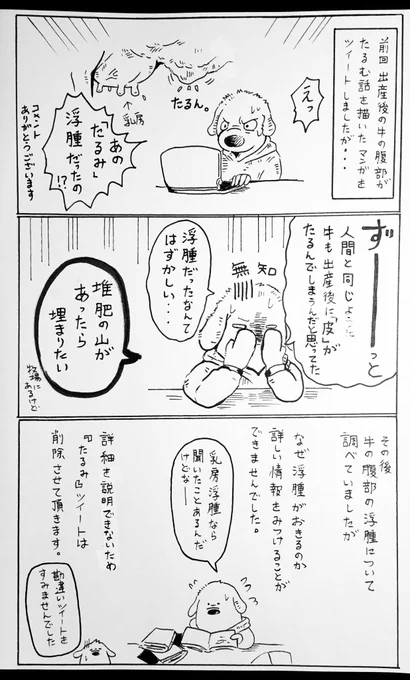 前回 出産後の牛の腹部が
たるむ話を描いたマンガを
ツイートしましたが・・・
えっ
たるん。
↑乳房
あの
「たるみ」
浮腫だったの
!?
コメント
ありがとうございます
ずーーーっと
人間と同じように
牛も出産後に「皮」が
たるんでしまうんだと思ってた
無知
浮腫だったなんて
はずかしい・・・
堆肥の山が
あったら
埋まりたい
牧場に
あるけど
その後
牛の腹部の浮腫について
調べていましたが
なぜ浮腫がおきるのか
詳しい情報をみつけることが
できませんでした。
乳房浮腫なら
聞いたことあるんだ
けどなー
詳細を説明できないため
『たるみ』ツイートは
削除させて頂きます。
勘違いツイートを
すみませんでした